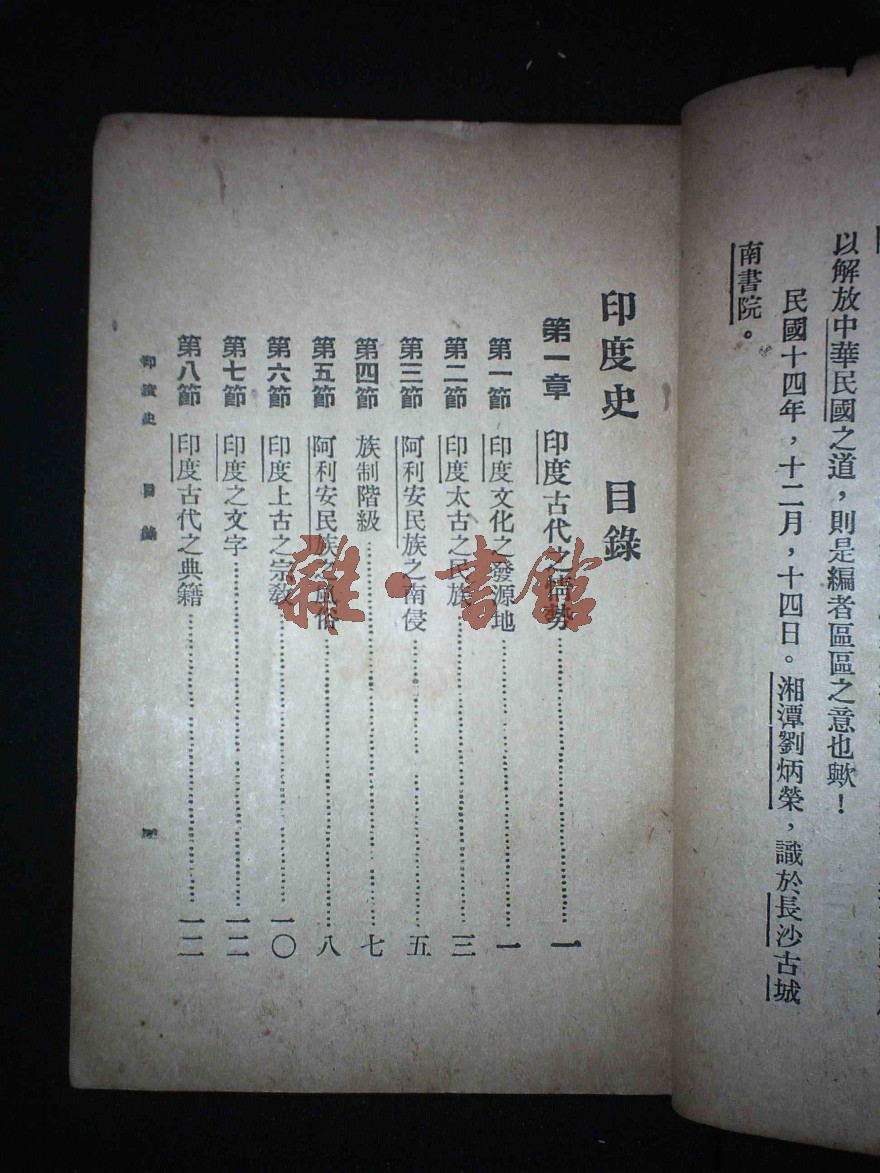 以解放中華民國之道，則是編者區區之意也歟！
民國十四年，十二月，十四日。湘潭劉炳榮，識於長沙古城
南書院。
印度史 目錄
第一章 印度古代之情勢……一
第一節 印度文化之發源地……一
第二節 印度太古之民族……三
第三節 阿利安民族之南侵……五
第四節 族制階級……七
第五節 阿利安民族之風俗……八
第六節 印度上古之宗教……一〇
第七節 印度之文字……一二
第八節 印度古代之典籍……一二
印度史 目錄
雜·書館